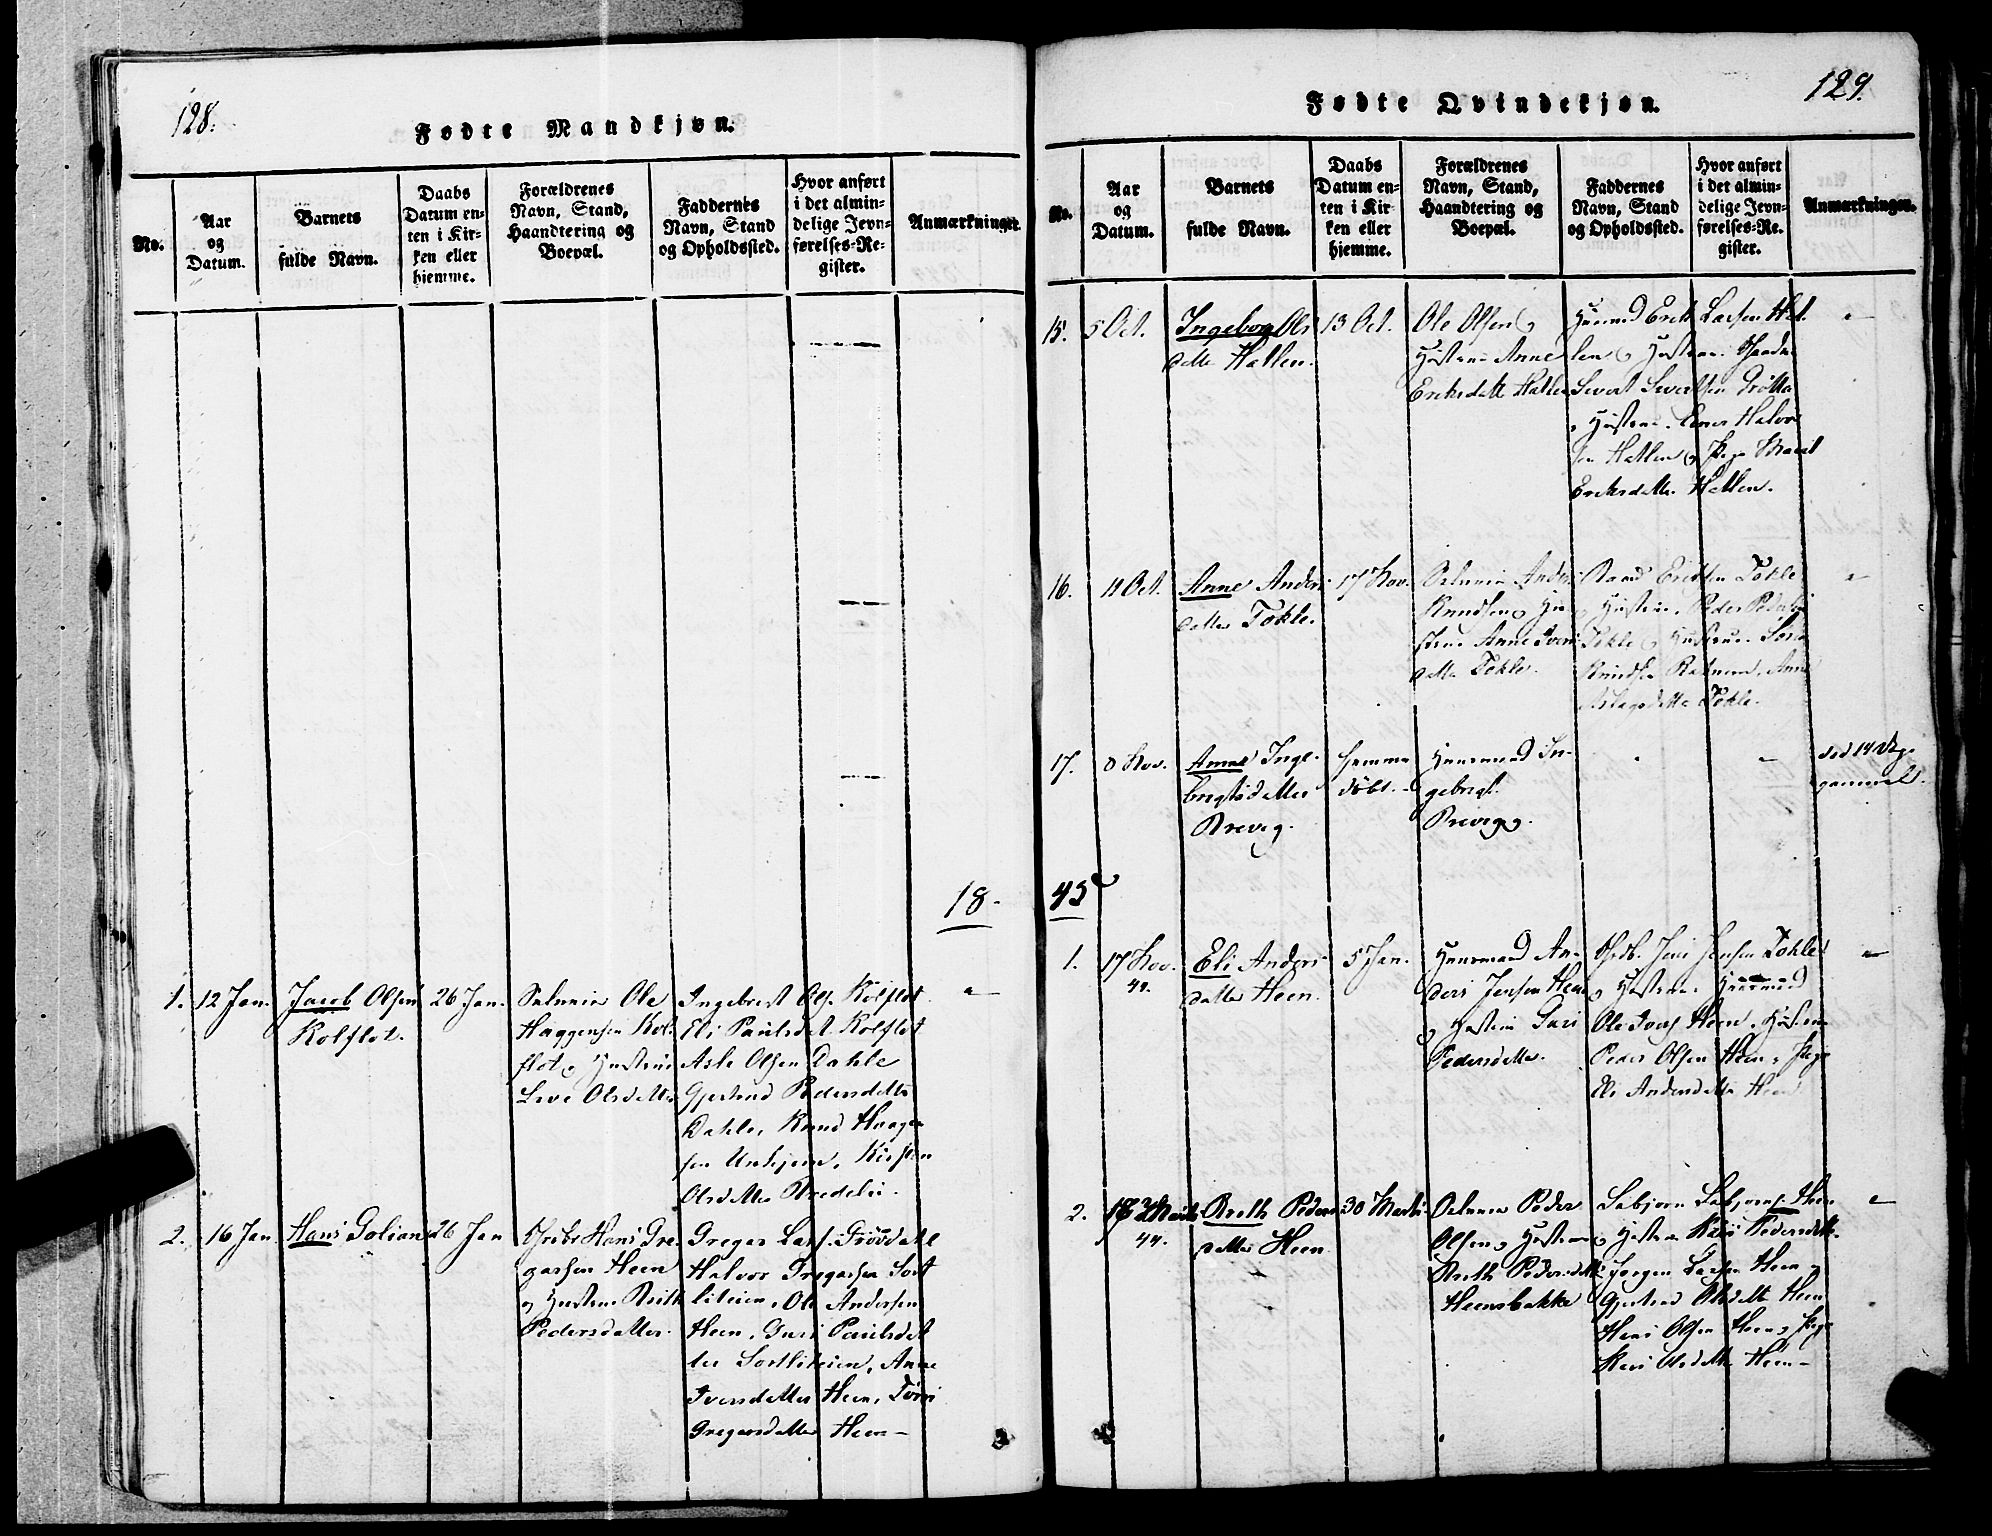 128.
Fødte Mandkjøn.
No.
Aar
og
Datum.
Barnets
fulde Navn.
Daabs
Datum en-
ten i Kir-
ken eller
hjemme.
Forældrenes
Navn, Stand,
Haandtering og
Boepæl.
Faddernes
Navn, Stand
og Opholdssted.
Hvor anført
i det almin-
delige Jevn-
førelses-Re-
gister.
Anmærkninger.
18.
1. 12 Jan.
Jacob Olsen
Kolflot.
26 Jan.
Ole
Haggensen Kol-
flot og Hustrue
Olsdatter
Ingebret Ols. Kolflot
Eli Paulsdat. Kolflot
Asle Olsen Dahle
Gjertrud Pedersdatter
Dahle, Knud Haagen
sen Unhjem, Kirsten
Olsdatter
2. 16 Jan.
Hans Golian
26 Jan
Hans Gre-
garsen Heen
og Hustrue Brith
Pedersdatter.
Gregar Lars.
Halvor Gregarsen Sort
liteien, Ole Andersen
Heen, Guri Paulsdat
ter Sortliteien, Anne
Iversdatter Heen,
Gregarsdatter Heen—
129.
Fødte Qvindekjøn.
No.
Aar
og
Datum.
Barnets
fulde Navn.
Daabs
Datum en-
ten i Kir-
ken eller
hjemme.
Forældrenes
Navn, Stand,
Haandtering og
Boepæl.
Faddernes
Navn, Stand
og Opholdssted.
Hvor anført
i det almin-
delige Jevn-
førelses-Re-
gister.
Anmærkninger.
15. 5 Oct.
Ingeborg Ols
datter Hatlen.
13 Oct.
Ole Olsen og
Hustrue Anne
Eriksdatt Hatlen
Huusmd Erik Larsen Hat
len og Hustrue.
Sivert Sivertsen
og Hustrue. Halvor
sen Hatlen og Pige Marit
Eriksdatter Hatlen.
16. 11 Oct.
Anne Anders
datter Tokle.
17 Nov.
Anders
Knudsen og Hu-
strue Anne Ivers
datter Tokle.
Eriksen Tokle
og Hustrue, Peder Pedersen
Tokle og Hustrue.
Knudsen Anne
Aslagsdatter Tokle.
17. 8 Nov.
Anne Inge-
brigtsdatter
Brevig.
hjemme
døbt.
Huusmand In-
gebrigt
Brevig
død 14 Dg.
gammel.
45
1. 17 Nov.
44.
Eli Anders
datter Heen.
5 Jan.
Huusmand An-
ders Jensen Heen
og Hustrue Guri
Pedersdatter.
Jens Jensen Tokle
og Hustrue Huusmand
Ole Ivers. Heen, Hustrue
Peder Olsen Heen, Pige
Eli Andersdatter Heen
2.
44.
Brith Peders
datter Heen
30 Marts
Peder
Olsen og Hustrue
Brith Pedersdatter
Heensbakke
Esbjørn Esbjørns. Heen
og Hustrue Kari Pedersdatt.
Jørgen Larsen Heen og
Gjertrud Olsdatter Heen
Hans Olsen Heen, Pige
Kari Olsdatter Heen—